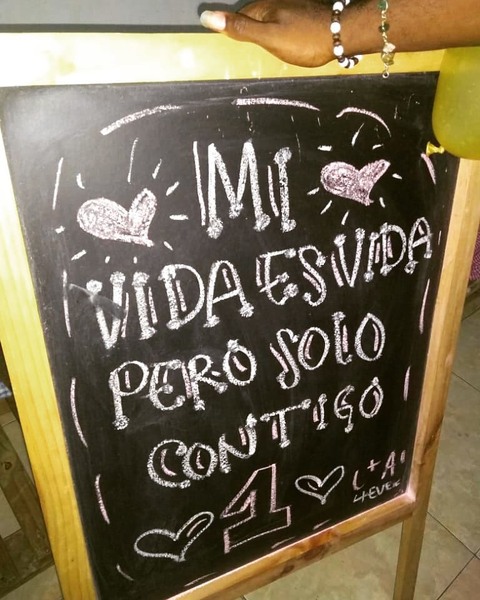 MI
VIDA ES VIDA
PERO SOLO
CONTIGO
1
L+A
4EVER